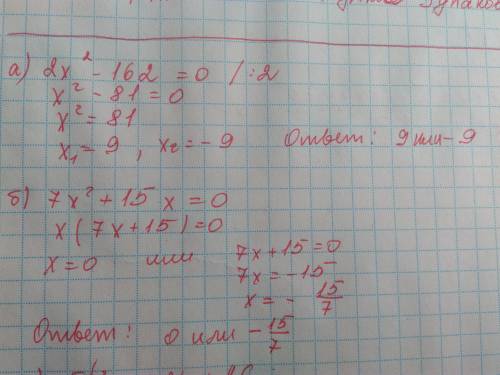 а) 2x² - 162 = 0 / :2
x² - 81 = 0
x² = 81
x₁ = 9, x₂ = - 9 Ответ: 9 или - 9
б) 7x² + 15x = 0
x(7x + 15) = 0
x = 0 или 7x + 15 = 0
7x = - 15
x = - 15/7
Ответ: 0 или - 15/7